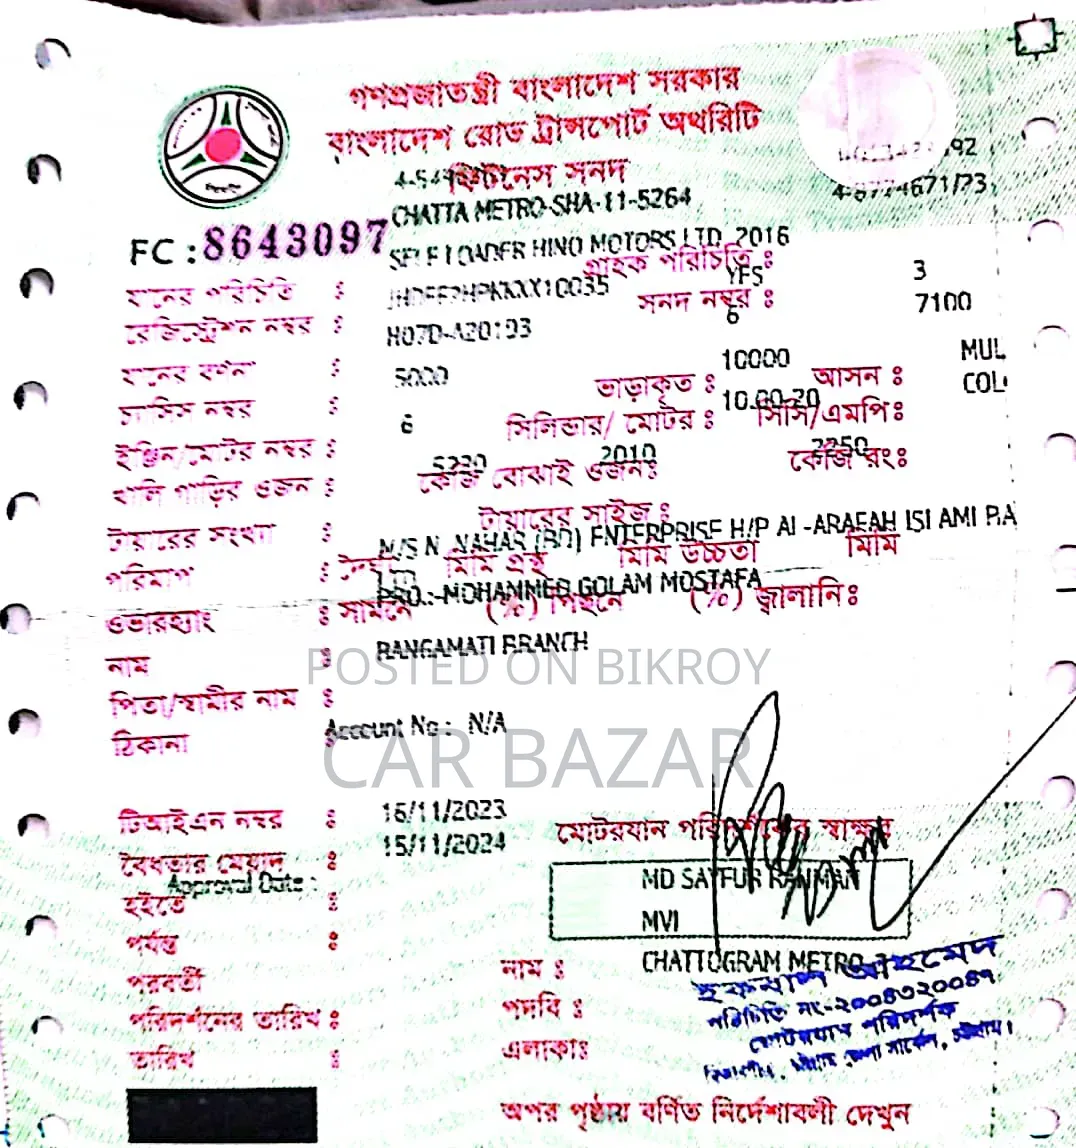 গণপ্রজাতন্ত্রী বাংলাদেশ সরকার
বাংলাদেশ রোড ট্রান্সপোর্ট অথরিটি
ফিটনেস সনদ
CHATTA METRO-SHA-11-5264
FC : 8643097
SELF LOADER HINO MOTORS LTD. 2016
গ্রাহক পরিচিতি :
যানের পরিচিতি :
YES 3
সনদ নম্বর :
রেজিস্ট্রেশন নম্বর :
6 7100
H07D-A20193
যানের বর্ণনা :
5000 10000 MUL
COL
ভাড়াকৃত : আসন :
চ্যাসিস নম্বর :
6 10.00-20
সিলিন্ডার/ মোটর : সিসি/এমপি:
ইঞ্জিন/মোটর নম্বর :
5230 2010 2250
খালি গাড়ির ওজন : কেজি বোঝাই ওজন: কেজি রং:
টায়ারের সংখ্যা : টায়ারের সাইজ :
M/S N. NAHAR (BD) ENTERPRISE H/P Al -ARAFAH ISLAMI BA
পরিমাপ : দৈর্ঘ্য মিমি প্রস্থ মিমি উচ্চতা মিমি
PRO.:-MOHAMMED GOLAM MOSTAFA
ওভারহ্যাং : সামনে (%) পিছনে (%) জ্বালানি :
নাম :
RANGAMATI BRANCH
POSTED ON BIKROY
পিতা/স্বামীর নাম :
ঠিকানা :
Account No : N/A
CAR BAZAR
টিআইএন নম্বর : 16/11/2023
মোটরযান পরিদর্শকের স্বাক্ষর
বৈধতার মেয়াদ : 15/11/2024
Approval Date :
হইতে :
MD SAYFUR RAHMAN
MVI
পর্যন্ত :
নাম : CHATTOGRAM METRO
পরবর্তী
পরিদর্শনের তারিখ :
পদবি :
তারিখ :
এলাকা:
ইকবাল আহমেদ
পরিচিতি নং-২০০৪৩২০০৪৭
মোটরযান পরিদর্শক
অপর পৃষ্ঠায় বর্ণিত নির্দেশাবলী দেখুন